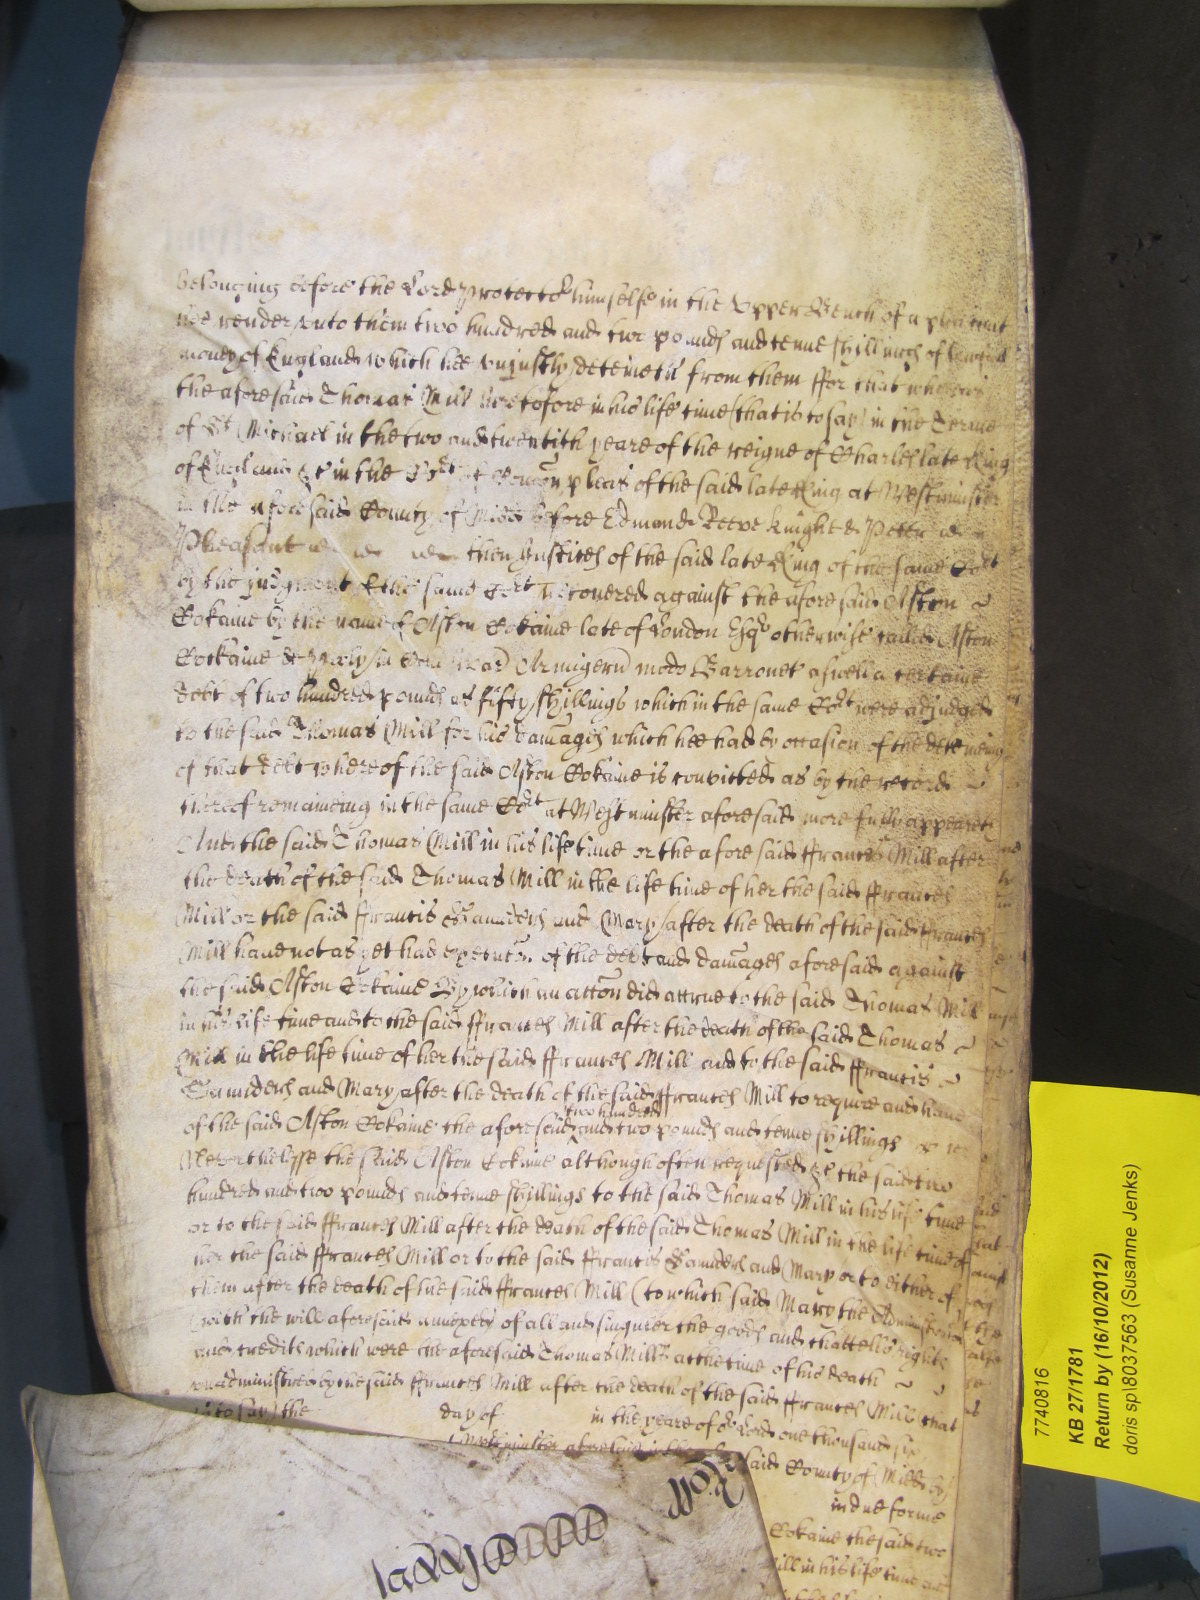 belonging before the Lord Protector himselfe in the Upper Bench of a plea that
hee render unto them two hundred and two pounds and tenne shillings of lawfull
money of England which hee unjustly deteineth from them ffor that whereas
the aforesaid Thomas Mill heretofore in his life time (that is to say) in the Terme
of St Michaell in the two and twentith yeare of the reigne of Charles late King
of England &c in the Cort of Comon pleas of the said late King at Westminster
in the aforesaid County of Midd before Edmond Reeve Knight & Peter
Pheasant then Justices of the said late King of the same Cort
by the judgment of the same Cort recovered against the aforesaid Aston
Cokaine by the name of Aston Cokaine late of London Esqr otherwise called Aston
Cockaine de in Com Armigerum modo Barronet aswell a certaine
debt of two hundred pounds as fifty shillings which in the same Cort were adjudged
to the said Thomas Mill for his damages which hee had by occasion of the deteining
of that debt whereof the said Aston Cokaine is convicted as by the record
thereof remaineing in the same Cort at Westminster aforesaid more fully appeareth
And the said Thomas Mill in his life time or the aforesaid ffrances Mill after
the death of the said Thomas Mill in the life time of her the said ffrances
Mill or the said ffrancis Saunders and Mary after the death of the said ffrances
Mill have not as yet had execucon of the debt and damages aforesaid against
the said Aston Cokaine By which an accon did accrue to the said Thomas Mill
in his life time and to the said ffrances Mill after the death of the said Thomas
Mill in the life time of her the said ffrances Mill and to the said ffrancis
Saunders and Mary after the death of the said ffrances Mill to require and have
of the said Aston Cokaine the aforesaid two hundred and two pounds and tenne shillings
Neverthelesse the said Aston Cokaine although often requested &c the said two
hundred and two pounds and tenne shillings to the said Thomas Mill in his life time
or to the said ffrances Mill after the death of the said Thomas Mill in the life time of
her the said ffrances Mill or to the said ffrancis Saunders and Mary or to either of
them after the death of the said ffrances Mill (to which said Mary the Administracon
with the will aforesaid annexed of all and singuler the goods and chattells rights
and credits which were the aforesaid Thomas Mills at the time of his death
unadministred by the said ffrances Mill after the death of the said ffrances Mill that
is to say the day of in the yeare of or Lord one thousand six
Westminster aforesaid in the said County of Midd by
in due forme
Cokaine the said two
Mill in his life time
Roll
7740816
KB 27/1781
Return by (16/10/2012)
doris sp\8037563 (Susanne Jenks)